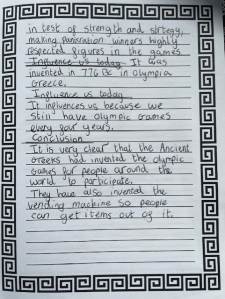 in test of strength and strtegy,
making pankration winners highly
respected figures in the games.
Influence us today It was
invented in 776 BC in Olympia
Greece.
Influence us today
It influences us because we
still have Olympic Games
every four years.
Conclusion
It is very clear that the Ancient
Greeks had invented the olympic
games for people around the
world to participate.
They have also invented the
vending machine so people
can get items out of it.